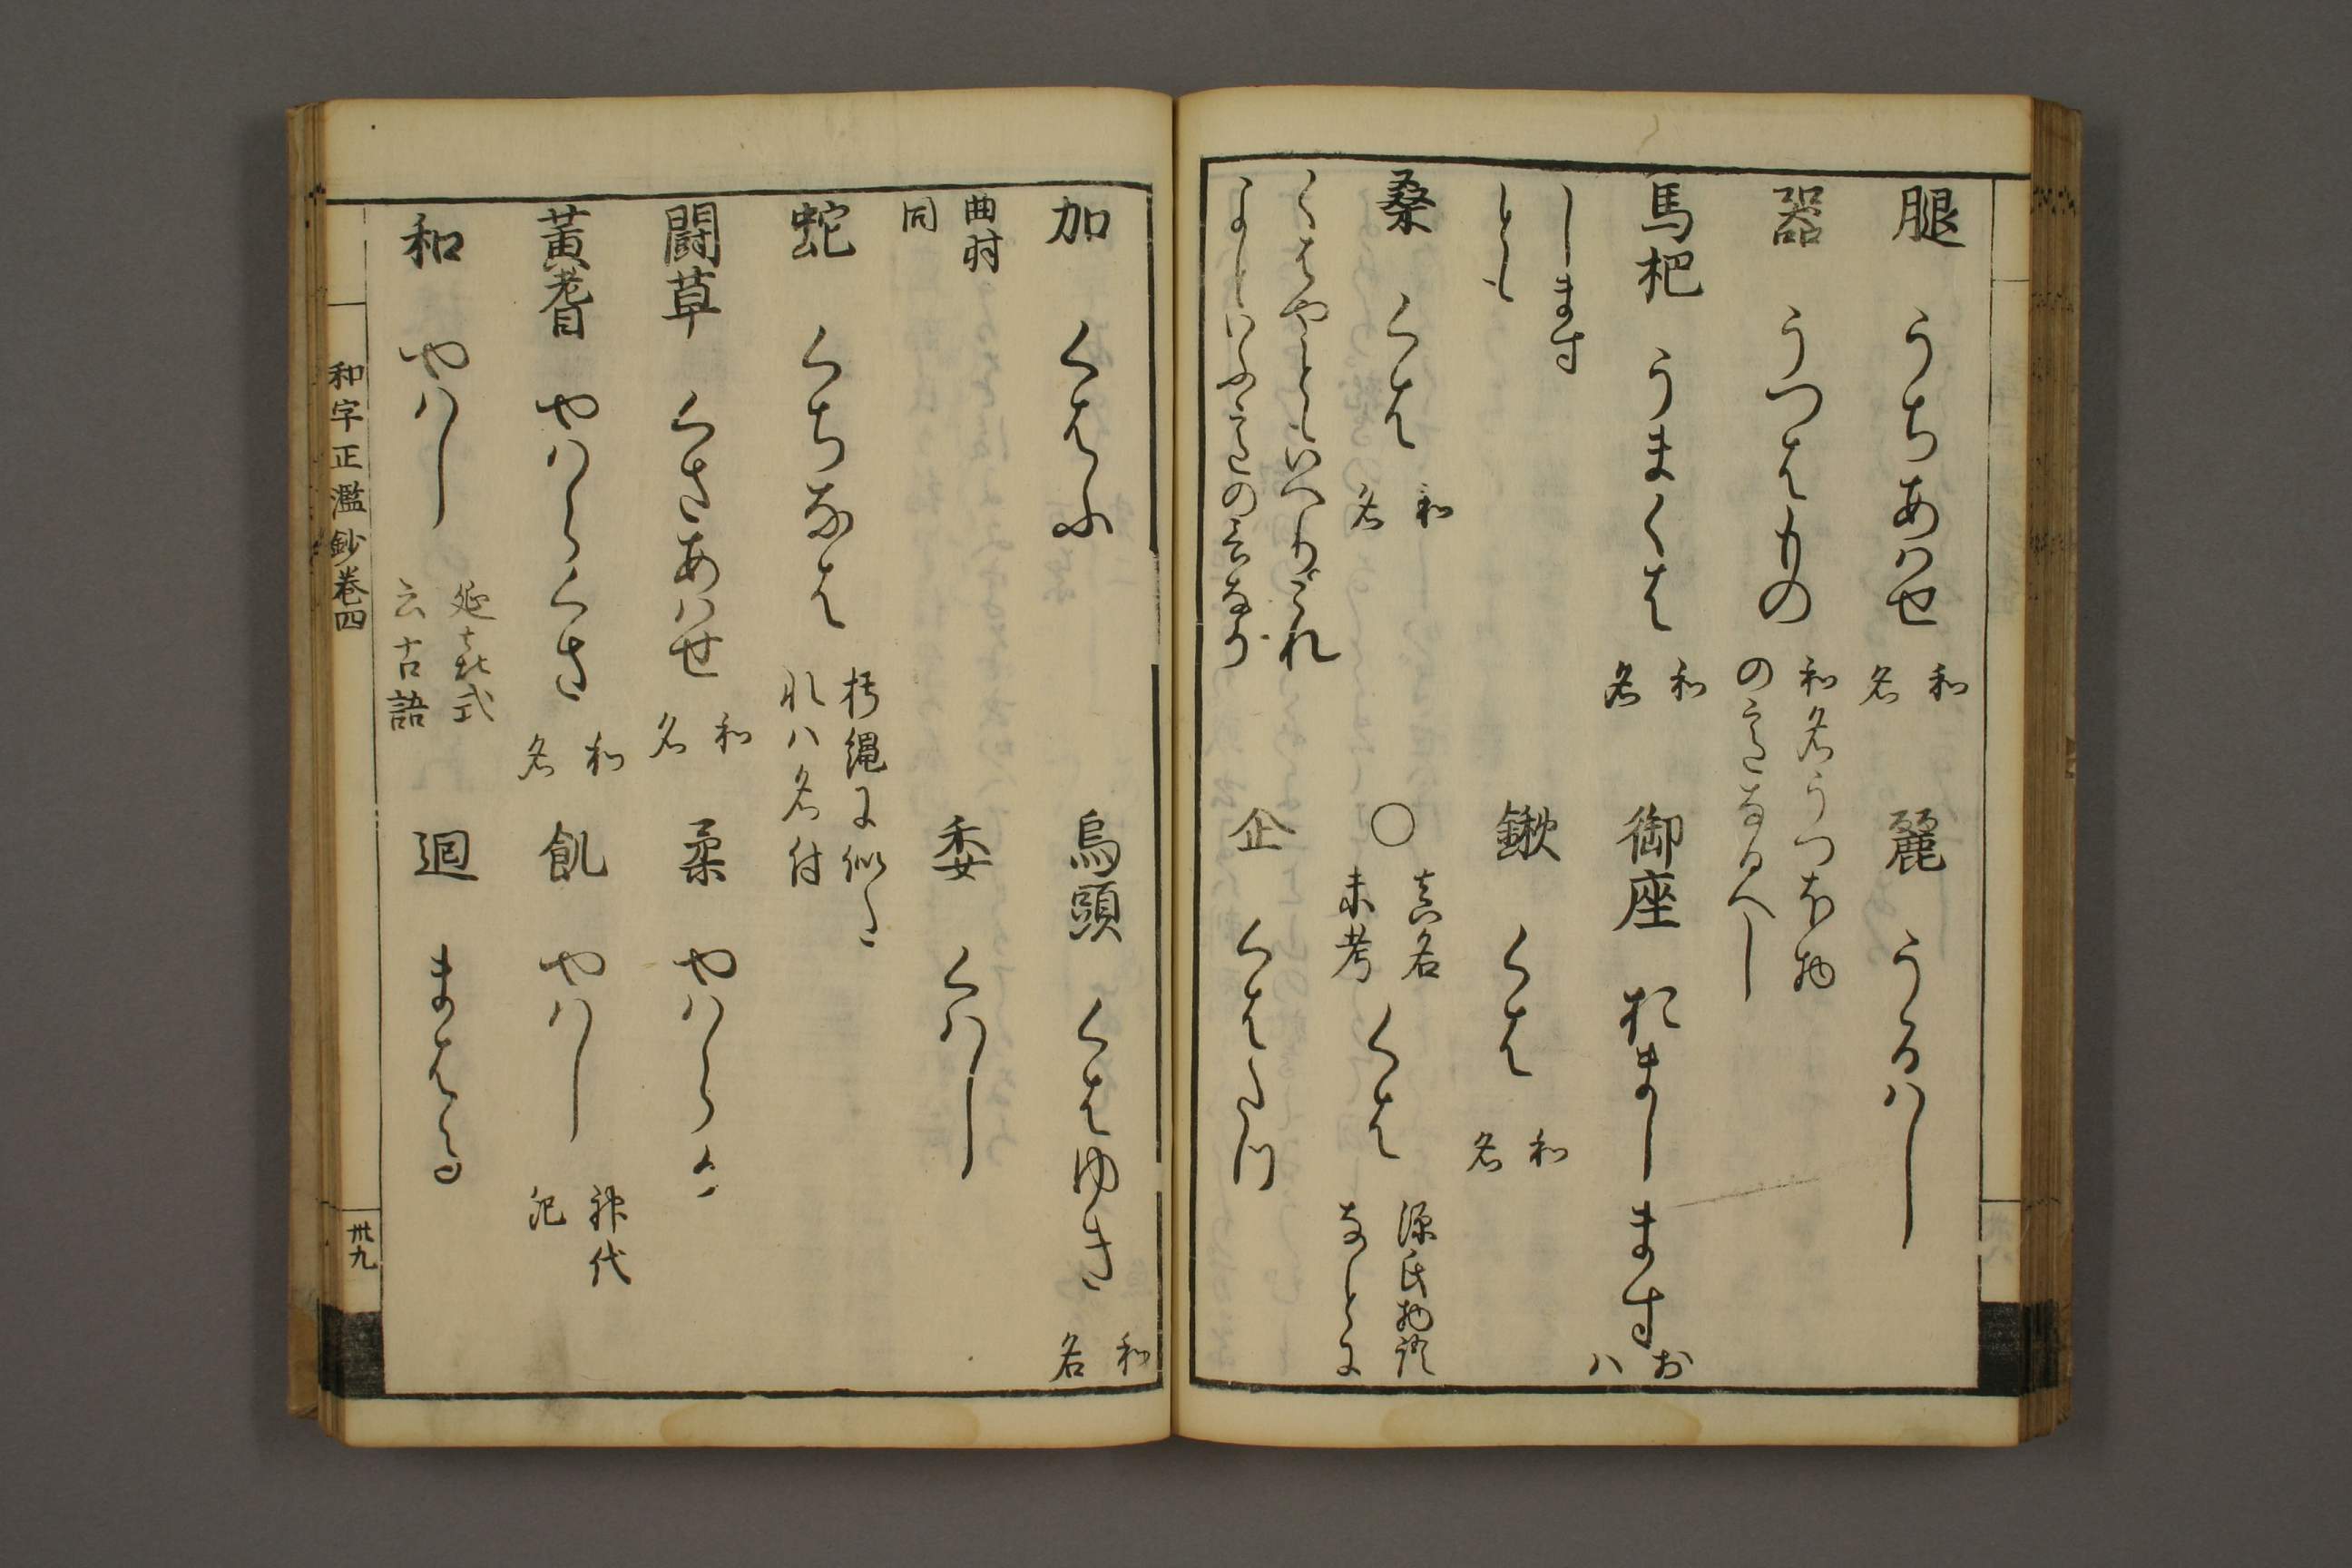 腿 うちあハせ 和名 麗 うるハし
器 うつはもの 和名うつほ物のこゝろなるへし
馬杷 うまくは 和名 御座 おまし ます おハ
します
とも 鍬 くは 和名
桑 くは 和名 ○ 真名未考 くは 源氏物語なとに
くはやともいへり
よしといふ 企 くはたつ
加 くはふ 烏頭 くはゆき 和名
曲肘同 委 くハし
蛇 くちなは 朽縄に似たれハ名付
闘草 くさあハせ 和名 柔 やハらか
黄耆 やハらくさ 和名 飢 やハし 神代紀
和 やハし 延喜式云古語 廻 まはる
和字正濫鈔巻四
卅九